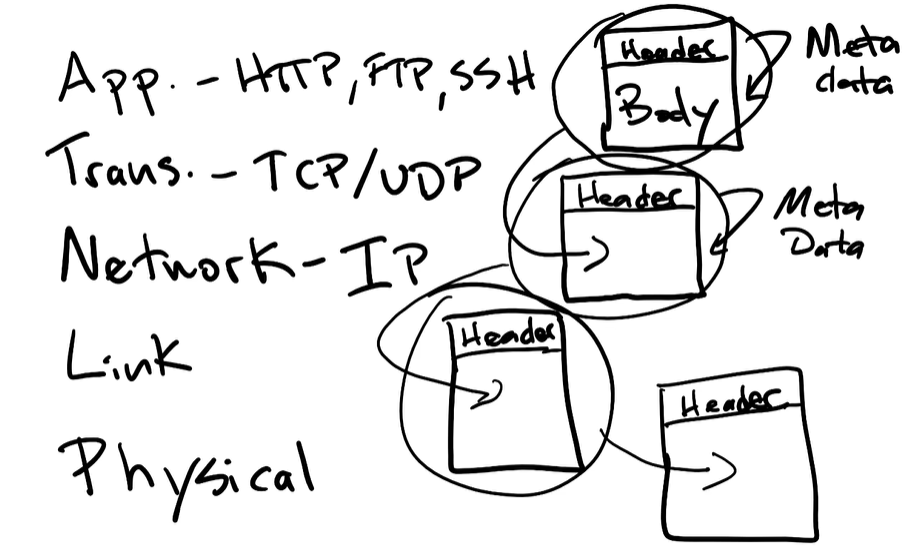 App. - HTTP, FTP, SSH
Trans. - TCP/UDP
Network - IP
Link
Physical
Header
Body
Meta
data
Header
Meta
Data
Header
Header